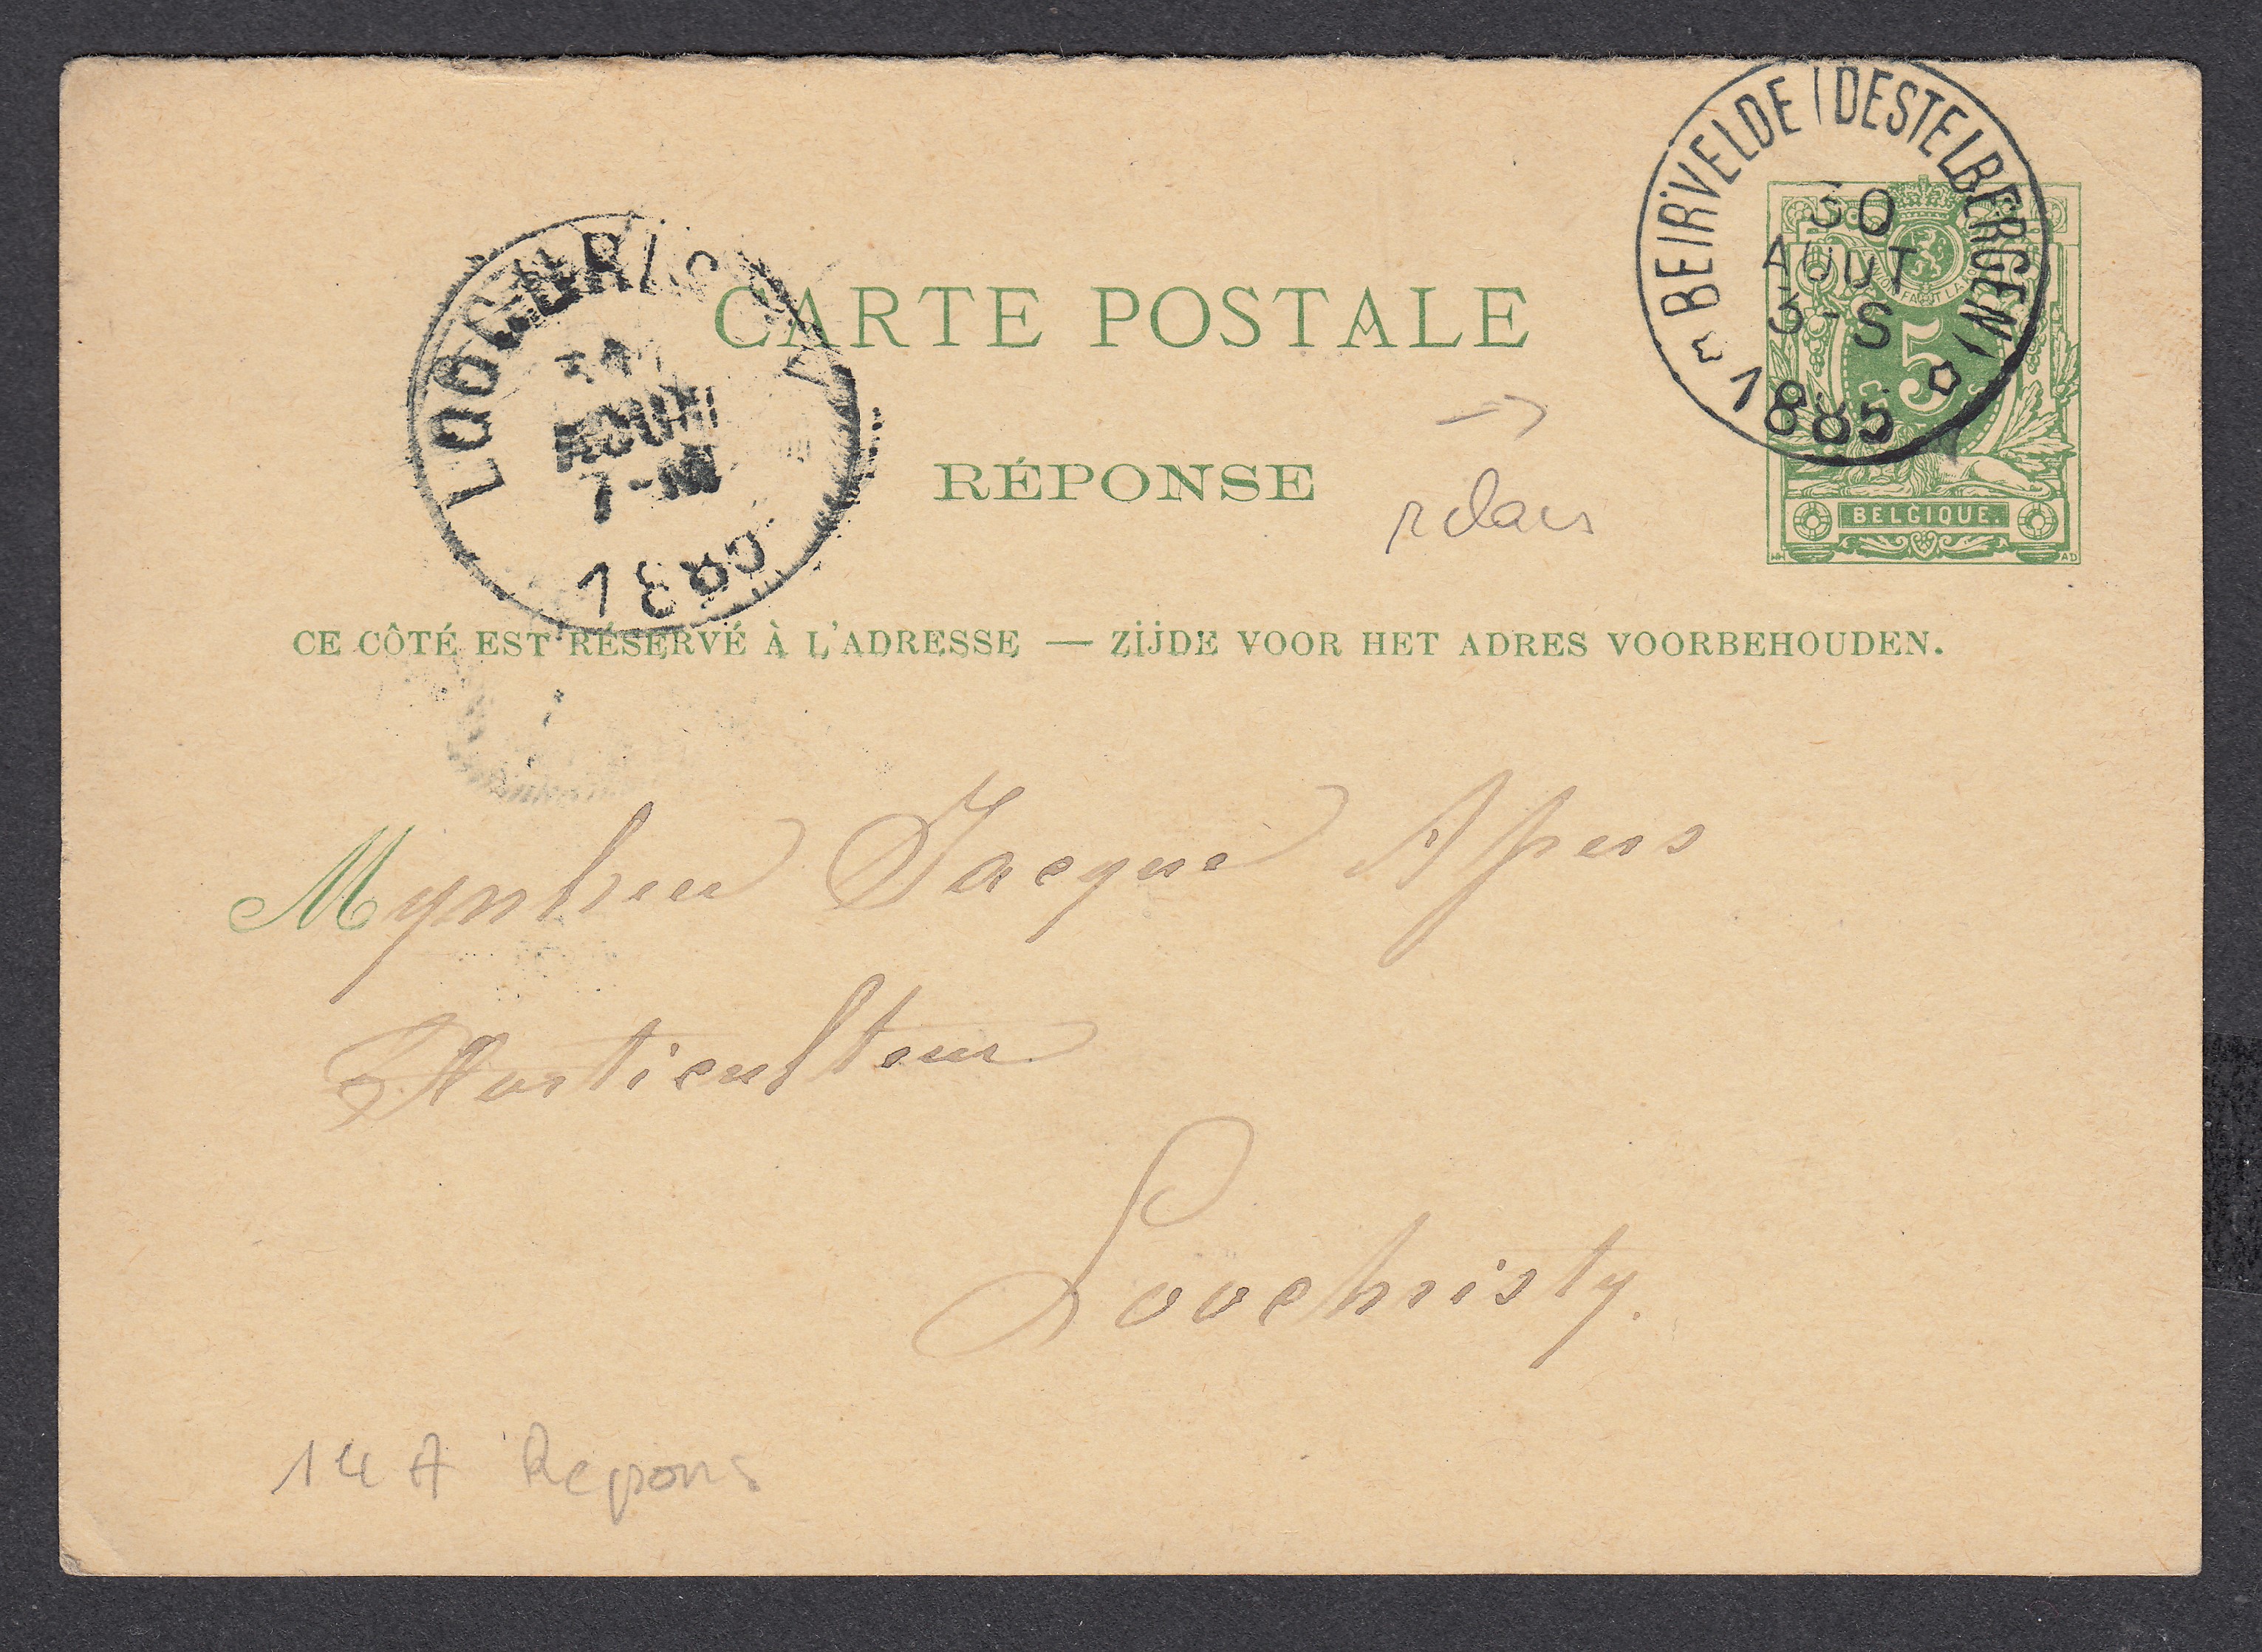 BEIRVELDE (DESTELBERGEN)
30
AOUT
3-S
1885
LOOCHRISTY
31
AOUT
7-M
1885
CARTE POSTALE
RÉPONSE
relais
5
BELGIQUE.
CE CÔTÉ EST RÉSERVÉ À L'ADRESSE — ZIJDE VOOR HET ADRES VOORBEHOUDEN.
Mynheer Jacque Apers
Horticulteur
Loochristy.
14 A Repons